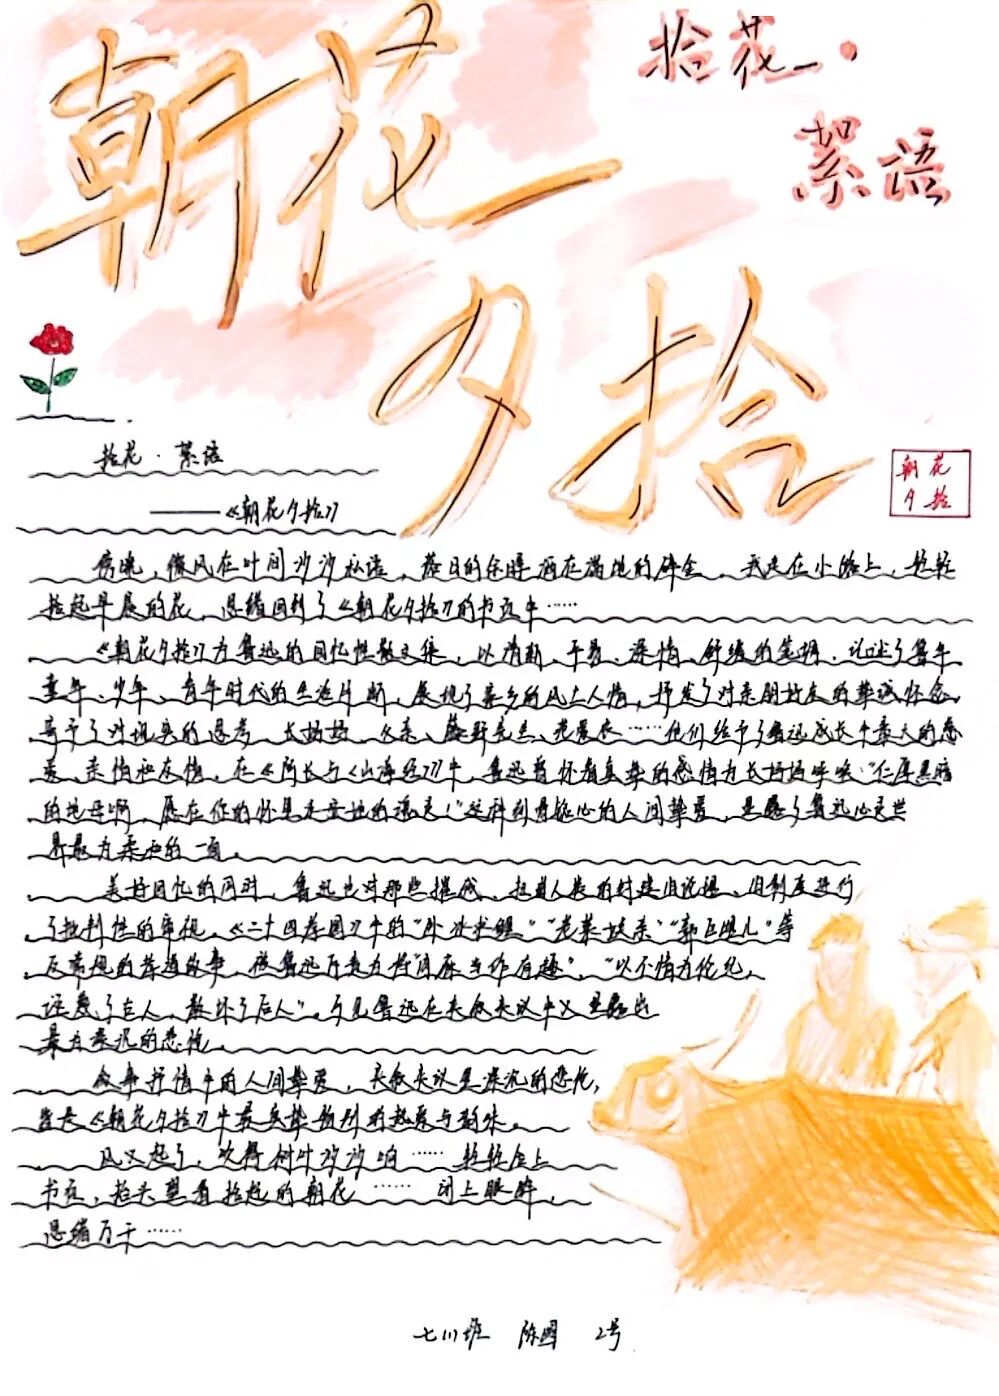 朝花
夕拾
拾花·
絮语
朝花
夕拾
拾花·絮语
——《朝花夕拾》
傍晚，微风在叶间沙沙私语，落日的余晖洒在满地的碎金，我走在小路上，轻轻
拾起早晨的花，思绪回到了《朝花夕拾》的书页中……
《朝花夕拾》为鲁迅的回忆性散文集，以清新、平易、深情、舒缓的笔调，记述了鲁
童年、少年、青年时代的生活片断，展现了家乡的风土人情，抒发了对亲朋好友的真诚怀念，
寄予了对现实的思考。长妈妈、父亲、藤野先生、范爱农……他们给予了鲁迅成长中最大的恩
爱、亲情和友情，在《阿长与《山海经》》中，鲁迅曾怀着真挚的感情为长妈妈呼唤："仁厚黑暗
的地母啊，愿在你的怀里永安她的魂灵！"这种刻骨铭心的人间挚爱，显露了鲁迅心灵世
界最为柔和的一角。
美好回忆的同时，鲁迅也对那些摧残、扭曲人类的封建旧说理、旧制度进行
了批判性的审视。《二十四孝图》中的"卧冰求鲤""老莱娱亲""郭巨埋儿"等
反常规的孝道故事，被鲁迅斥责为将"肉麻当作有趣"、"以不情为伦纪，
诬蔑了古人，教坏了后人"。可见鲁迅在夹叙夹议中又显露出
最为深沉的悲怆。
叙事抒情中的人间挚爱，夹叙夹议里深沉的悲怆，
皆是《朝花夕拾》中最真挚独到的趣味与韵味。
风又起了，吹得树叶沙沙响…… 轻轻合上
书页，抬头望着拾起的朝花…… 闭上眼眸，
思绪万千……
七(1)班 陈 2号